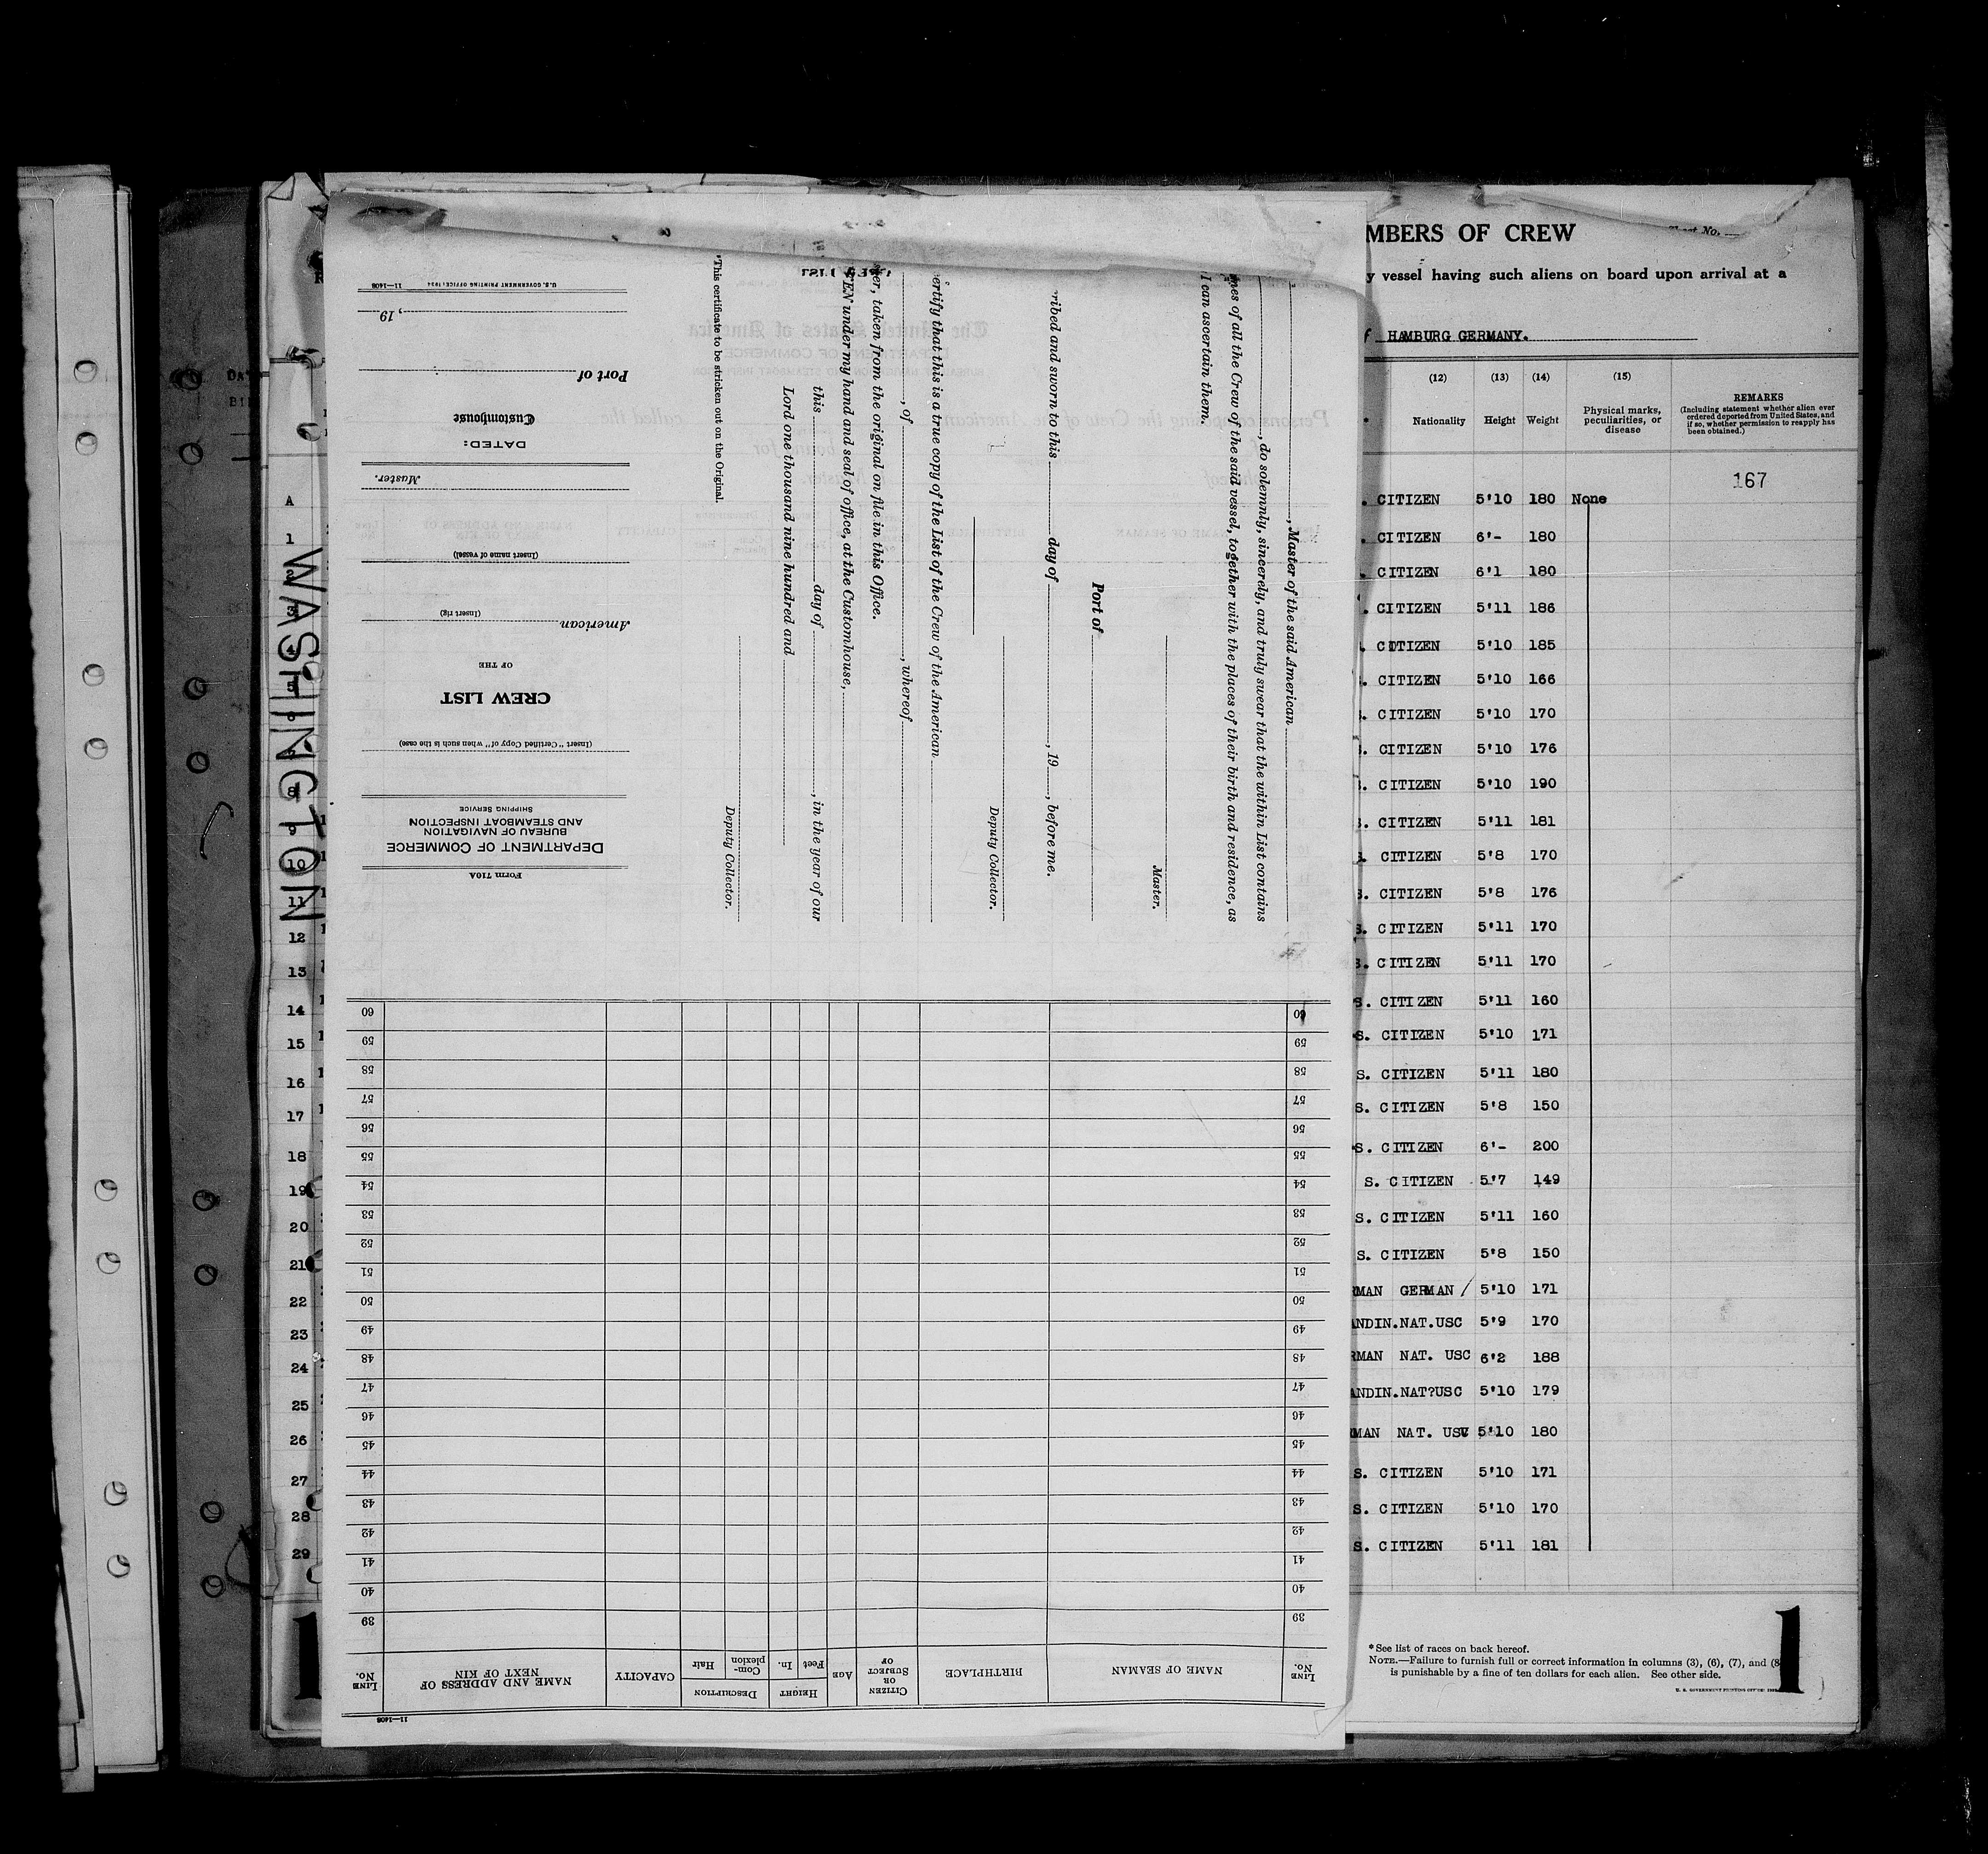 WASHINGTON
DA
BI
A
1
2
3
4
5
6
7
8
9
10
11
12
13
14
15
16
17
18
19
20
21
22
23
24
25
26
27
28
29
1
11—1408
U.S. GOVERNMENT PRINTING OFFICE: 1934
, 19
Port of
Customhouse
DATED:
Master.
(Insert name of vessel)
(Insert rig)
American
OF THE
CREW LIST
(Insert "Certified Copy of" when such is the case)
SHIPPING SERVICE
AND STEAMBOAT INSPECTION
BUREAU OF NAVIGATION
DEPARTMENT OF COMMERCE
Form 710A
, Master of the said American
, do solemnly, sincerely, and truly swear that the within List contains
mes of all the Crew of the said vessel, together with the places of their birth and residence, as
I can ascertain them.
Master.
Port of
ribed and sworn to this day of , 19 , before me.
Deputy Collector.
ertify that this is a true copy of the List of the Crew of the American
, of , whereof
ster, taken from the original on file in this Office.
EN under my hand and seal of office, at the Customhouse,
this day of , in the year of our
Lord one thousand nine hundred and
Deputy Collector.
*This certificate to be stricken out on the Original.
60 60
59 59
58 58
57 57
56 56
55 55
54 54
53 53
52 52
51 51
50 50
49 49
48 48
47 47
46 46
45 45
44 44
43 43
42 42
41 41
40 40
39 39
LINE No. NAME OF SEAMAN BIRTHPLACE CITIZEN OR SUBJECT OF AGE HEIGHT Feet In. DESCRIPTION Complexion Hair CAPACITY NAME AND ADDRESS OF NEXT OF KIN LINE No.
11—1408
MBERS OF CREW
y vessel having such aliens on board upon arrival at a
f HAMBURG GERMANY.
(12) (13) (14) (15)
Nationality Height Weight Physical marks, peculiarities, or disease
REMARKS
(Including statement whether alien ever
ordered deported from United States, and
if so, whether permission to reapply has
been obtained.)
167
. CITIZEN 5'10 180 None
. CITIZEN 6'- 180
. CITIZEN 6'1 180
. CITIZEN 5'11 186
. CITIZEN 5'10 185
. CITIZEN 5'10 166
. CITIZEN 5'10 170
. CITIZEN 5'10 176
. CITIZEN 5'10 190
. CITIZEN 5'11 181
. CITIZEN 5'8 170
S. CITIZEN 5'8 176
S. CITIZEN 5'11 170
S. CITIZEN 5'11 170
S. CITIZEN 5'11 160
S. CITIZEN 5'10 171
S. CITIZEN 5'11 180
S. CITIZEN 5'8 150
S. CITIZEN 6'- 200
S. CITIZEN 5'7 149
S. CITIZEN 5'11 160
S. CITIZEN 5'8 150
RMAN GERMAN / 5'10 171
ANDIN.NAT.USC 5'9 170
RMAN NAT. USC 6'2 188
ANDIN.NAT?USC 5'10 179
RMAN NAT. USC 5'10 180
S. CITIZEN 5'10 171
S. CITIZEN 5'10 170
S. CITIZEN 5'11 181
*See list of races on back hereof.
NOTE.—Failure to furnish full or correct information in columns (3), (6), (7), and (8
is punishable by a fine of ten dollars for each alien. See other side.
1